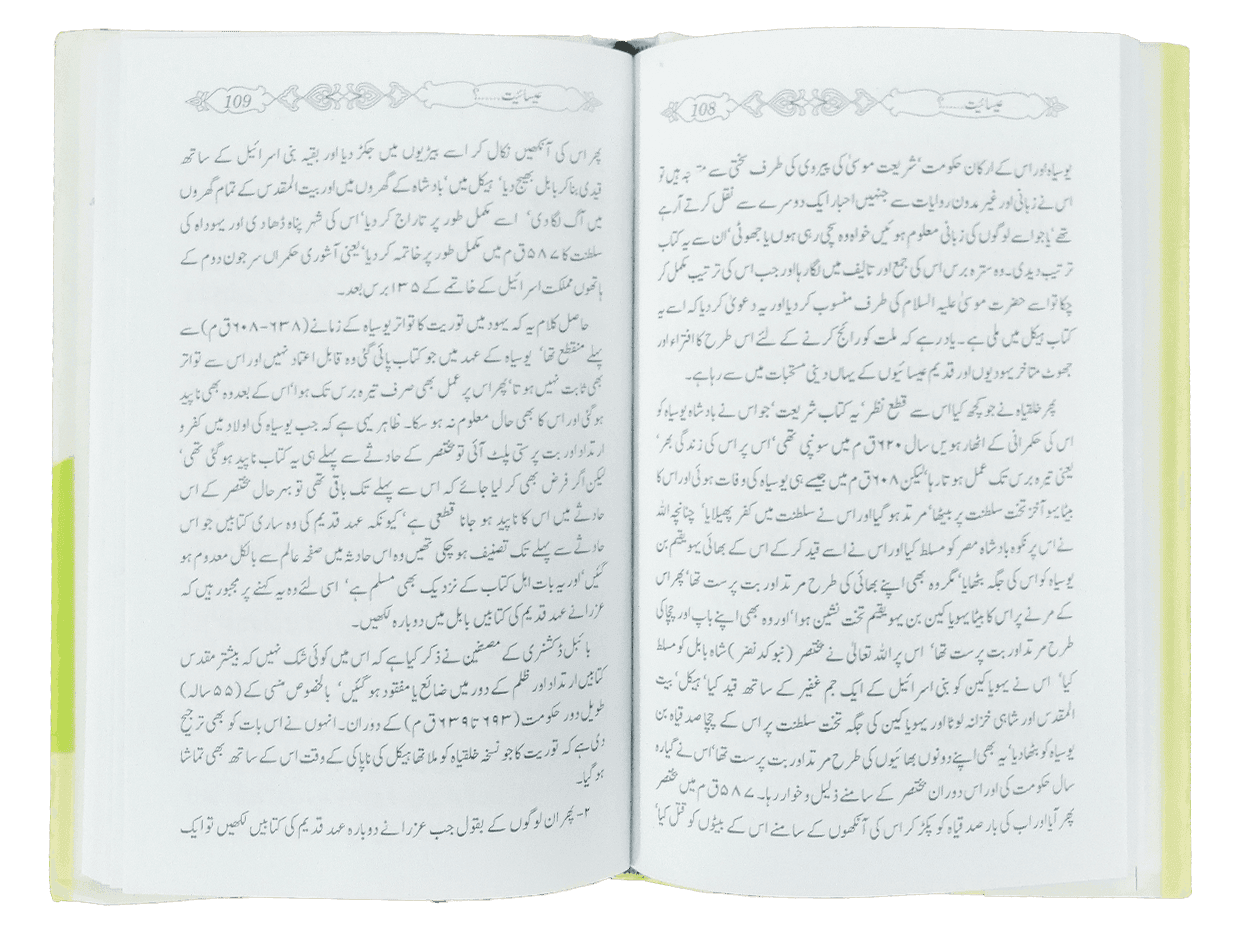 عیسائیت......؟ 108
یوسیاہ اور اس کے ارکان حکومت ‘شریعت موسیٰ کی پیروی کی طرف سختی سے متوجہ ہیں تو
اس نے زبانی اور غیر مدون روایات سے جنہیں احبار ایک دوسرے سے نقل کرتے آرہے
تھے‘ یا جو اسے لوگوں کی زبانی معلوم ہوئیں خواہ وہ سچی رہی ہوں یا جھوٹی‘ ان سے یہ کتاب
ترتیب دیدی۔ وہ سترہ برس اس کی جمع اور تالیف میں لگا رہا اور جب اس کی ترتیب مکمل کر
چکا تو اسے حضرت موسیٰ علیہ السلام کی طرف منسوب کر دیا اور یہ دعویٰ کر دیا کہ اسے یہ
کتاب ہیکل میں ملی ہے۔ یاد رہے کہ ملت کو رائج کرنے کے لئے اس طرح کا افتراء اور
جھوٹ متاخر یہودیوں اور قدیم عیسائیوں کے یہاں دینی مستحبات میں سے رہا ہے۔
پھر خلقیاہ نے جو کچھ کیا اس سے قطع نظر‘ یہ کتاب شریعت‘ جو اس نے بادشاہ یوسیاہ کو
اس کی حکمرانی کے اٹھارھویں سال ۶۲۰ ق م میں سونپی تھی‘ اس پر اس کی زندگی بھر‘
یعنی تیرہ برس تک عمل ہوتا رہا‘ لیکن ۶۰۸ ق م میں جیسے ہی یوسیاہ کی وفات ہوئی اور اس کا
بیٹا یہو آخز تخت سلطنت پر بیٹھا‘ مرتد ہو گیا اور اس نے سلطنت میں کفر پھیلایا‘ چنانچہ اللہ
نے اس پر نکوہ بادشاہ مصر کو مسلط کیا اور اس نے اسے قید کر کے اس کے بھائی یہویقیم بن
یوسیاہ کو اس کی جگہ بٹھایا‘ مگر وہ بھی اپنے بھائی کی طرح مرتد اور بت پرست تھا‘ پھر اس
کے مرنے پر اس کا بیٹا یہویاکین بن یہویقیم تخت نشین ہوا‘ اور وہ بھی اپنے باپ اور چچا کی
طرح مرتد اور بت پرست تھا‘ اس پر اللہ تعالیٰ نے مختصر (نبوکد نضر) شاہ بابل کو مسلط
کیا‘ اس نے یہویاکین کو بنی اسرائیل کے ایک جم غفیر کے ساتھ قید کیا‘ ہیکل‘ بیت
المقدس اور شاہی خزانہ لوٹا اور یہویاکین کی جگہ تخت سلطنت پر اس کے چچا صدقیاہ بن
یوسیاہ کو بٹھا دیا‘ یہ بھی اپنے دونوں بھائیوں کی طرح مرتد اور بت پرست تھا‘ اس نے گیارہ
سال حکومت کی اور اس دوران مختصر کے سامنے ذلیل و خوار رہا۔ ۵۸۷ ق م میں مختصر
پھر آیا اور اب کی بار صدقیاہ کو پکڑ کر اس کی آنکھوں کے سامنے اس کے بیٹوں کو قتل کیا‘
عیسائیت......؟ 109
پھر اس کی آنکھیں نکال کر اسے بیڑیوں میں جکڑ دیا اور بقیہ بنی اسرائیل کے ساتھ
قیدی بنا کر بابل بھیج دیا‘ ہیکل میں‘ بادشاہ کے گھروں میں اور بیت المقدس کے تمام گھروں
میں آگ لگا دی‘ اسے مکمل طور پر تاراج کر دیا‘ اس کی شہر پناہ ڈھا دی اور یہوداہ کی
سلطنت کا ۵۸۷ ق م میں مکمل طور پر خاتمہ کر دیا‘ یعنی آشوری حکمراں سرجون دوم کے
ہاتھوں مملکت اسرائیل کے خاتمے کے ۱۳۵ برس بعد۔
حاصل کلام یہ کہ یہود میں توریت کا تواتر یوسیاہ کے زمانے (۶۳۸-۶۰۸ ق م) سے
پہلے منقطع تھا‘ یوسیاہ کے عہد میں جو کتاب پائی گئی وہ قابل اعتماد نہیں اور اس سے تواتر
بھی ثابت نہیں ہوتا‘ پھر اس پر عمل بھی صرف تیرہ برس تک ہوا‘ اس کے بعد وہ بھی ناپید
ہو گئی اور اس کا بھی حال معلوم نہ ہو سکا۔ ظاہر یہی ہے کہ جب یوسیاہ کی اولاد میں کفر و
ارتداد اور بت پرستی پلٹ آئی تو مختصر کے حادثے سے پہلے ہی یہ کتاب ناپید ہو گئی تھی‘
لیکن اگر فرض بھی کر لیا جائے کہ اس سے پہلے تک باقی تھی تو بہر حال مختصر کے اس
حادثے میں اس کا ناپید ہو جانا قطعی ہے‘ کیونکہ عہد قدیم کی وہ ساری کتابیں جو اس
حادثے سے پہلے تک تصنیف ہو چکی تھیں وہ اس حادثہ میں صفحہ عالم سے بالکل معدوم ہو
گئیں‘ اور یہ بات اہل کتاب کے نزدیک بھی مسلم ہے‘ اسی لئے وہ یہ کہنے پر مجبور ہیں کہ
عزرا نے عہد قدیم کی کتابیں بابل میں دوبارہ لکھیں۔
بائبل ڈکشنری کے مصنفین نے ذکر کیا ہے کہ اس میں کوئی شک نہیں کہ بیشتر مقدس
کتابیں ارتداد اور ظلم کے دور میں ضائع یا مفقود ہو گئیں‘ بالخصوص منسی کے (۵۵ سالہ)
طویل دور حکومت (۶۹۳ تا ۶۳۹ ق م) کے دوران۔ انہوں نے اس بات کو بھی ترجیح
دی ہے کہ توریت کا جو نسخہ خلقیاہ کو ملا تھا ہیکل کی ناپاکی کے وقت اس کے ساتھ بھی تماشا
ہو گیا۔
۲- پھر ان لوگوں کے بقول جب عزرا نے دوبارہ عہد قدیم کی کتابیں لکھیں تو ایک